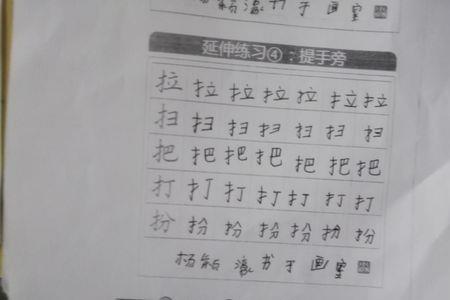 于画室
延伸练习④:提手旁
拉拉拉拉拉拉拉
扫扫扫扫扫扫扫
把把把把把把把
打打打打打打打
扮扮扮扮扮扮扮
杨 书于画室